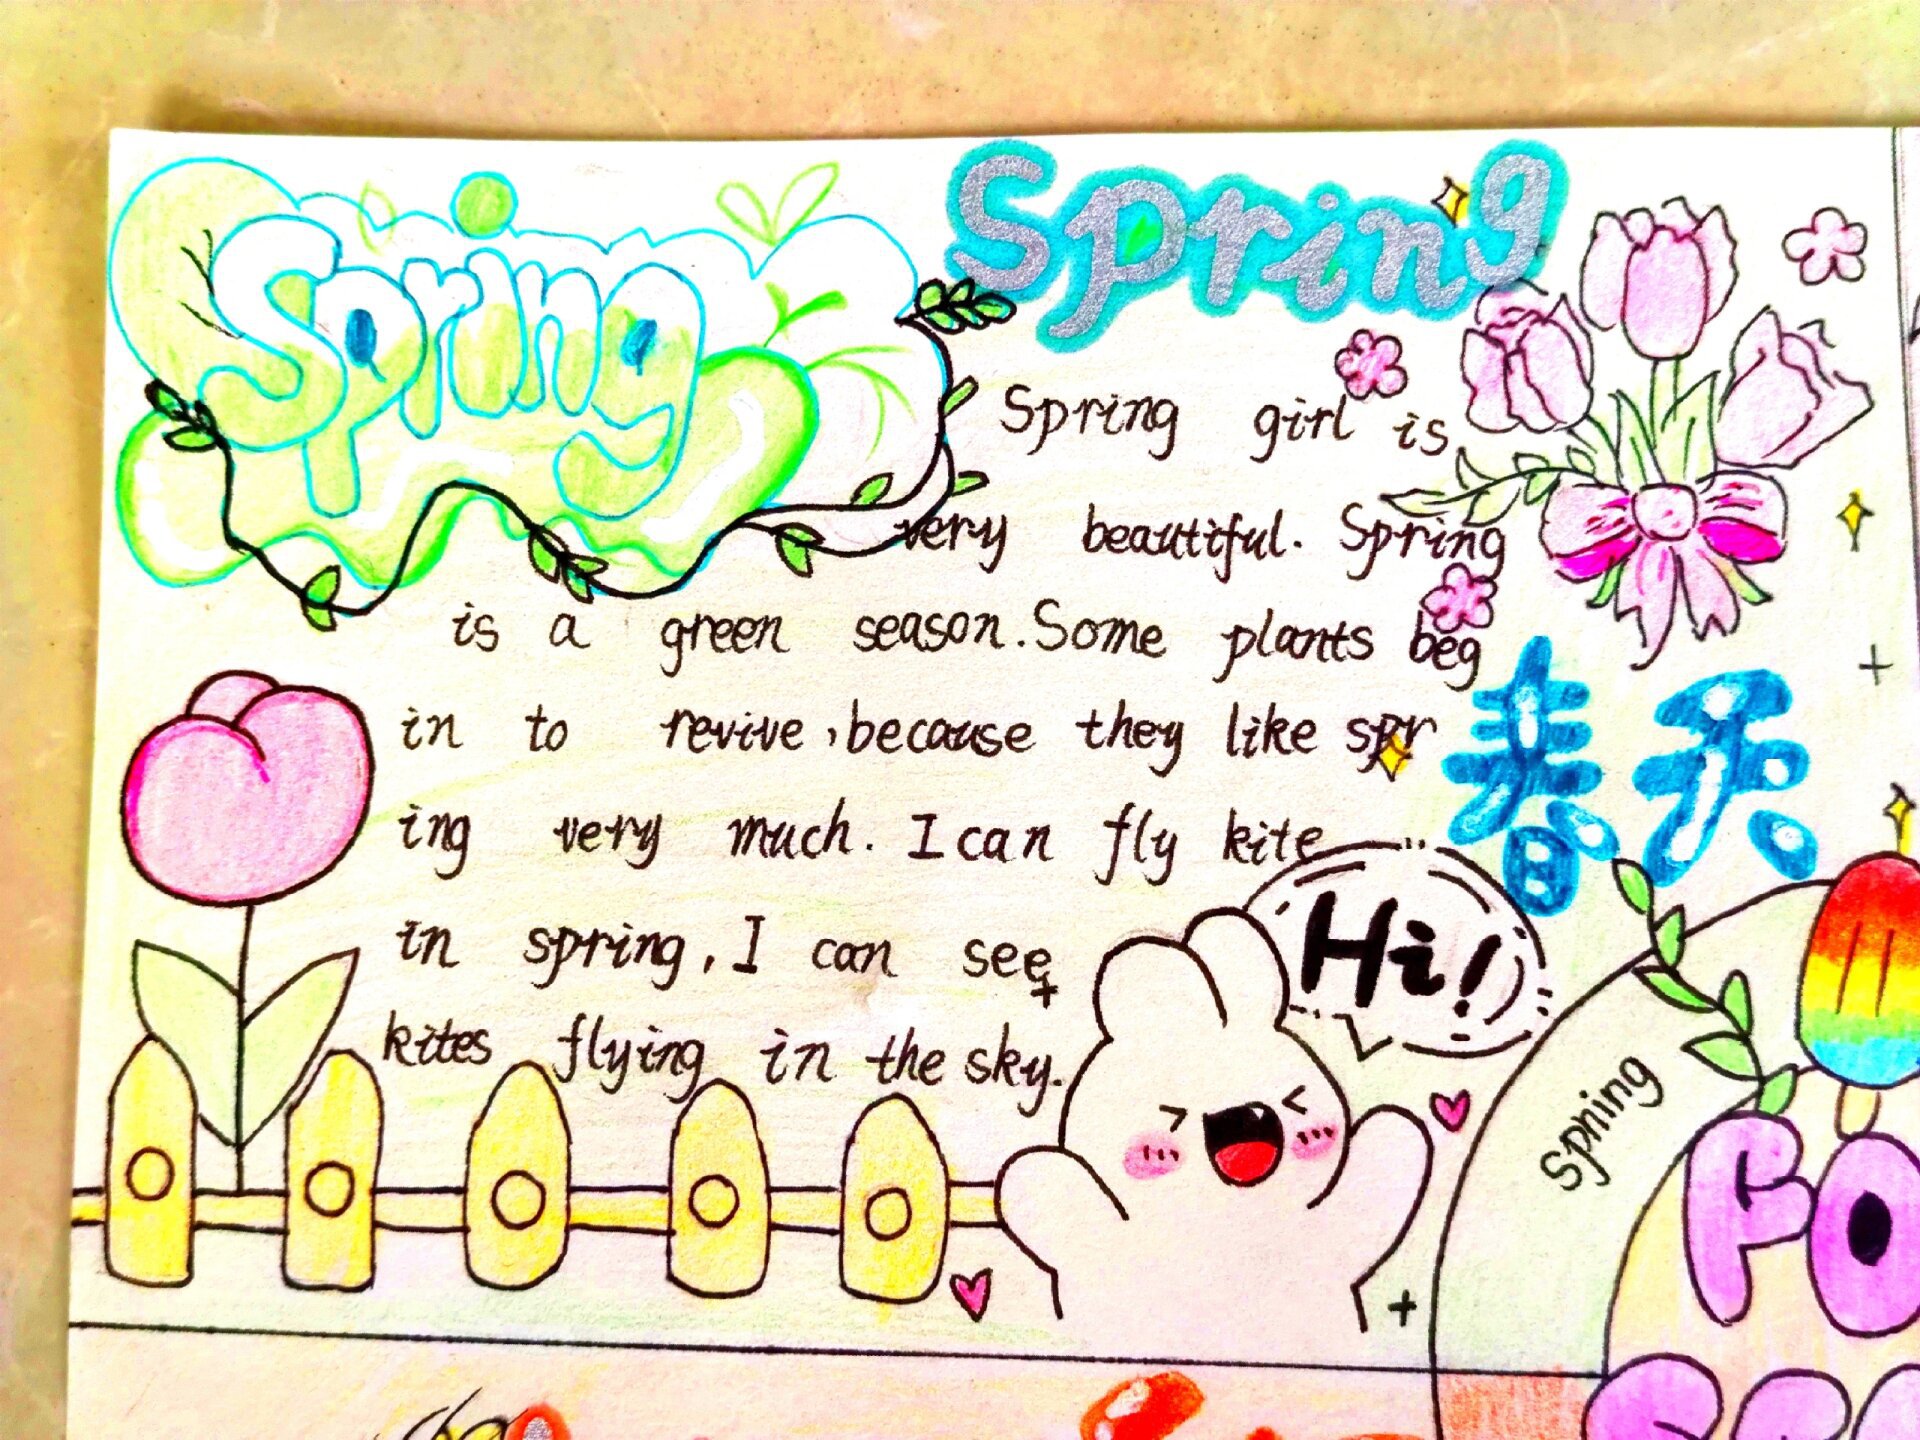 Spring
Spring
Spring girl is
very beautiful. Spring
is a green season. Some plants beg
in to revive, because they like spr
ing very much. I can fly kite
in spring, I can see
kites flying in the sky.
春天
Hi!
Spning